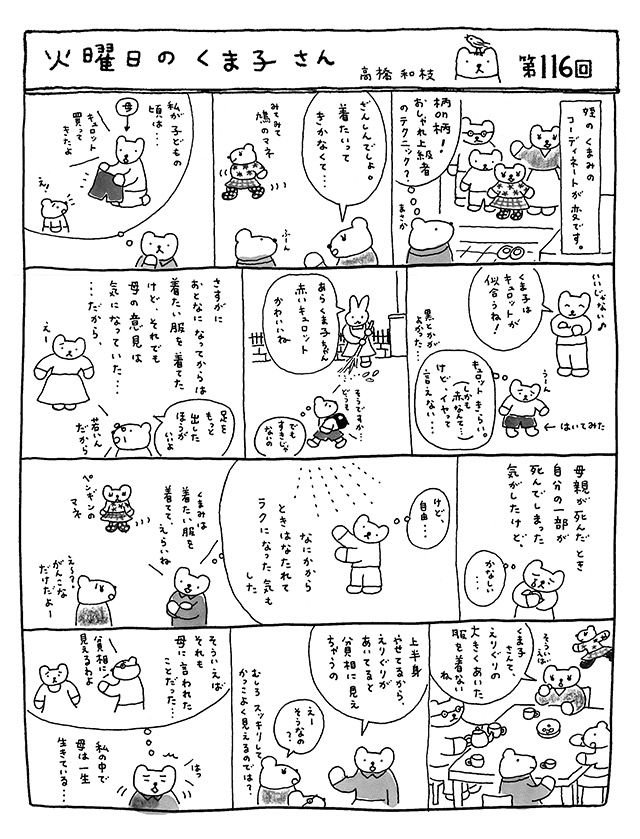 火曜日のくま子さん
高橋和枝
第116回
姪のくまみの
コーディネートが変です。
柄on柄!
おしゃれ上級者
のテクニック?
あさか
ざんしんでしょ。
着たいって
きかなくて…
みてみて
鳩のマネ
ふーん
私が子どもの
頃は…
母
キュロット
買って
きたよ
えっ
いいじゃない♪
くま子は
キュロットが
似合うね!
うーん
←はいてみた
キュロットきらい。
(しかも
赤なんて…)
けど、イヤって
言えない…
黒とかが
よかった…
あら くま子ちゃん
赤いキュロット
かわいいね
そうですか…
どうも
でも
すきじゃ
ないの
さすがに
おとなになってからは
着たい服を着てた
けど、それでも
母の意見は
気になっていた…
…だから、
えー
足を
もっと
出した
ほうが
いいよ
若いん
だから
母親が死んだとき
自分の一部が
死んでしまった
気がしたけど、
かなしい
…
けど、
自由…
なにかから
ときはなたれて
ラクになった気も
した
くまみは
着たい服を
着てて、えらいね
ペンギンの
マネ
え〜?
がんこな
だけだよー
そういえば
くま子
さんて、
えりぐりの
大きくあいた
服を着ない
ね
上半身
やせてるから、
えりぐりが
あいてると
貧相に見え
ちゃうの
えー
そうなの
?
むしろ スッキリして
かっこよく見えるのでは?
そういえば
それも
母に言われた
ことだった…
貧相に
見えるわよ
はっ
私の中で
母は一生
生きている…